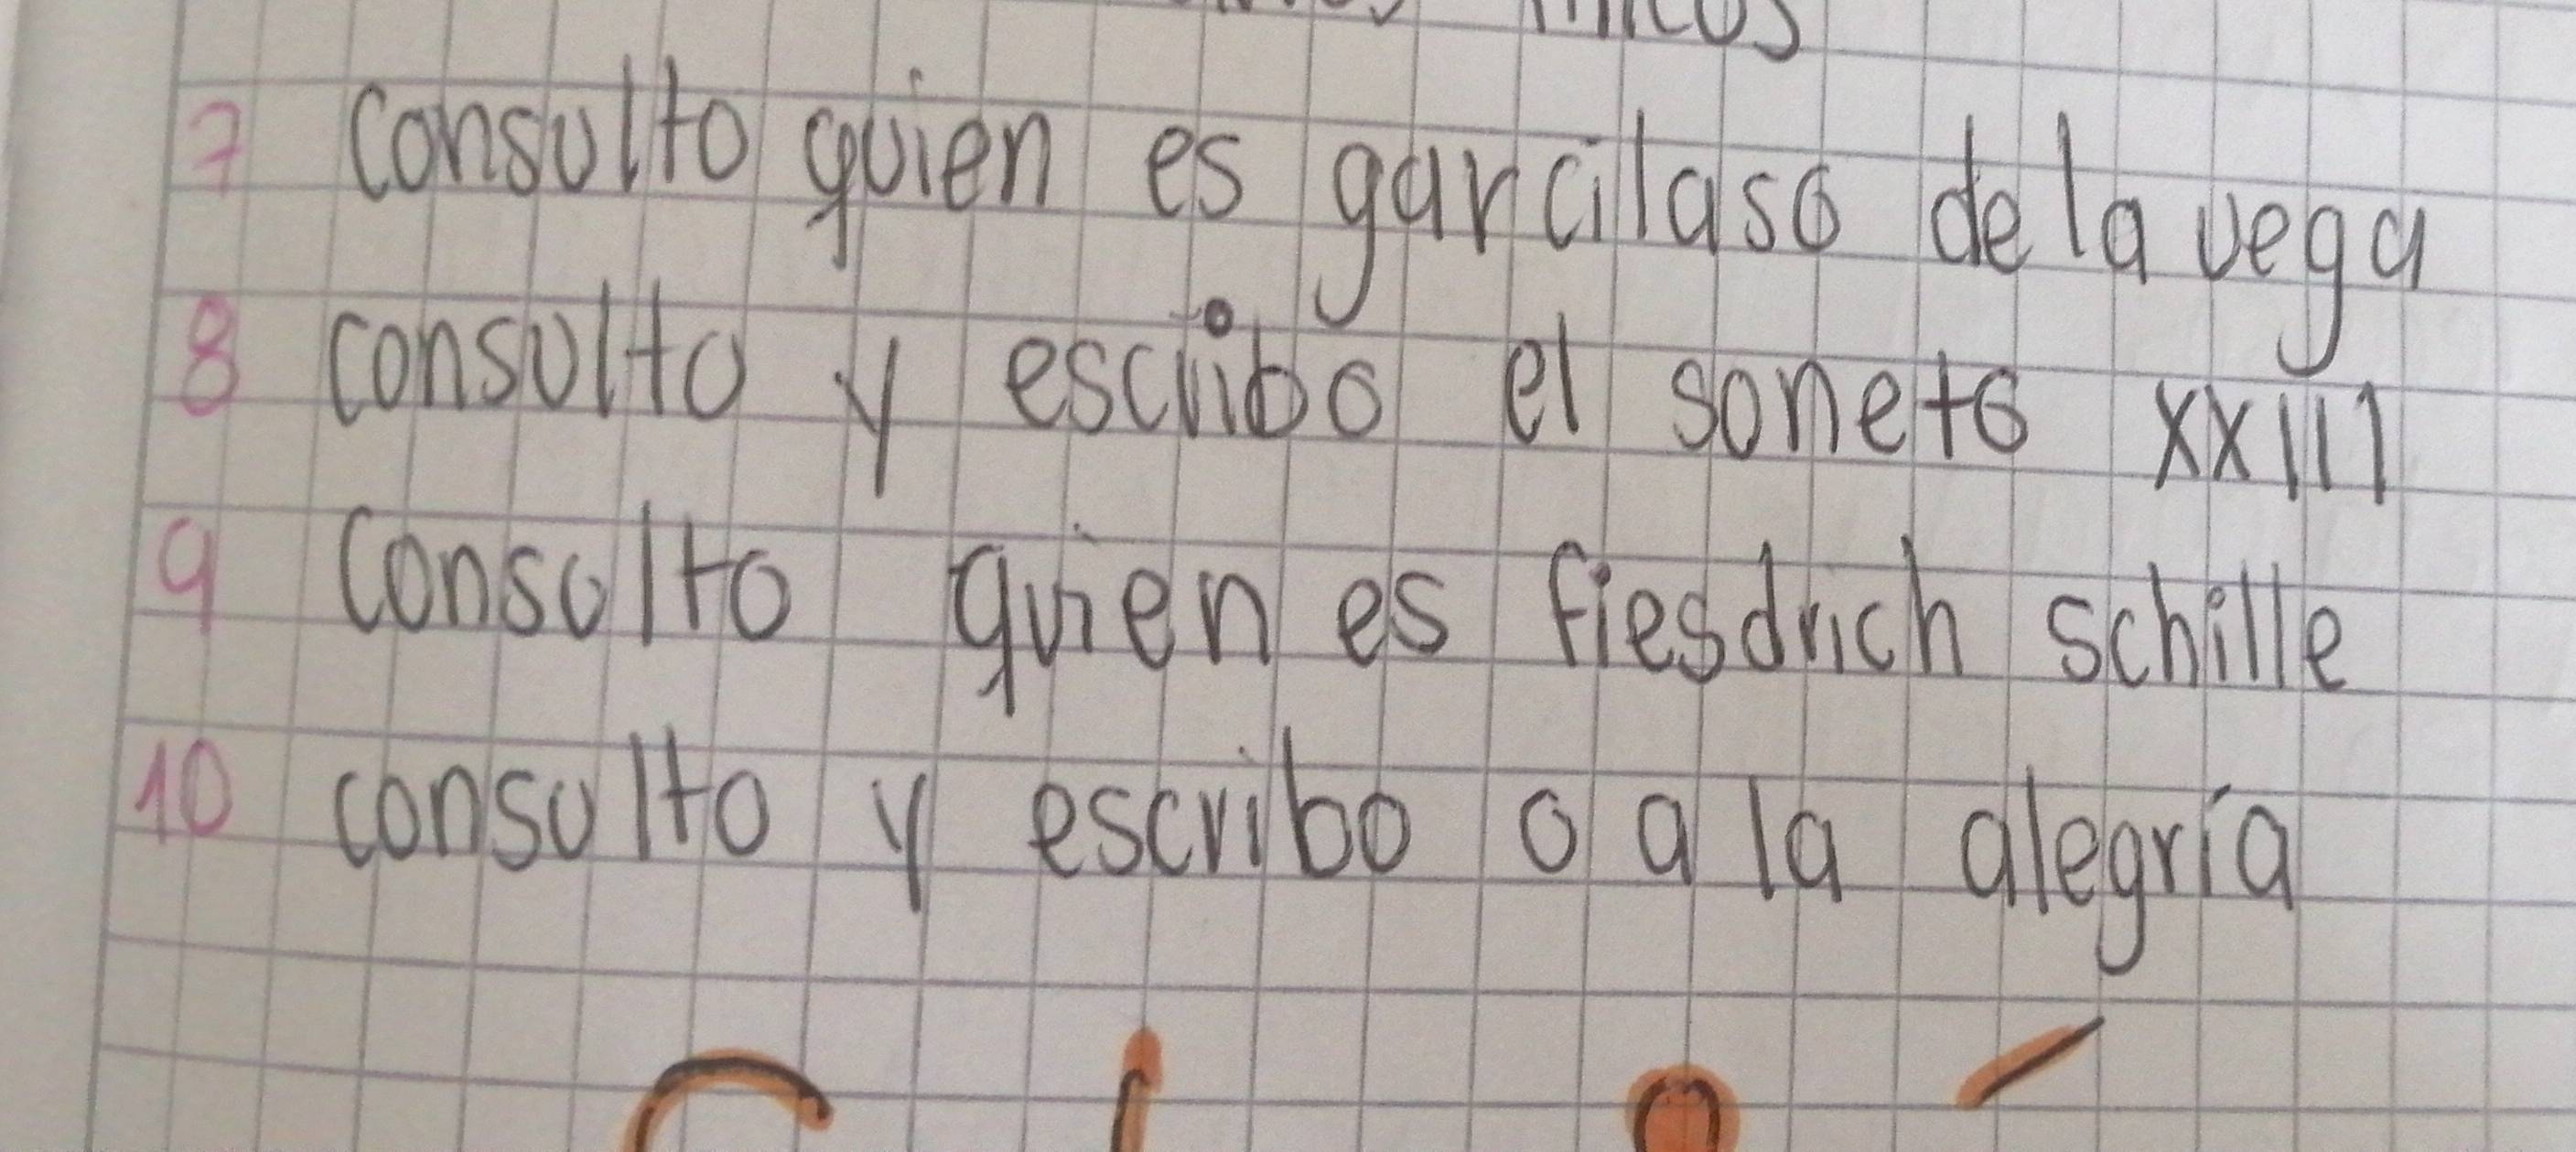 7 consulto quien es garcilaso de la vega
8 consulto y escribo el soneto XXIII
9 consulto quien es fiesdrich schille
10 consulto y escribo o a la alegría